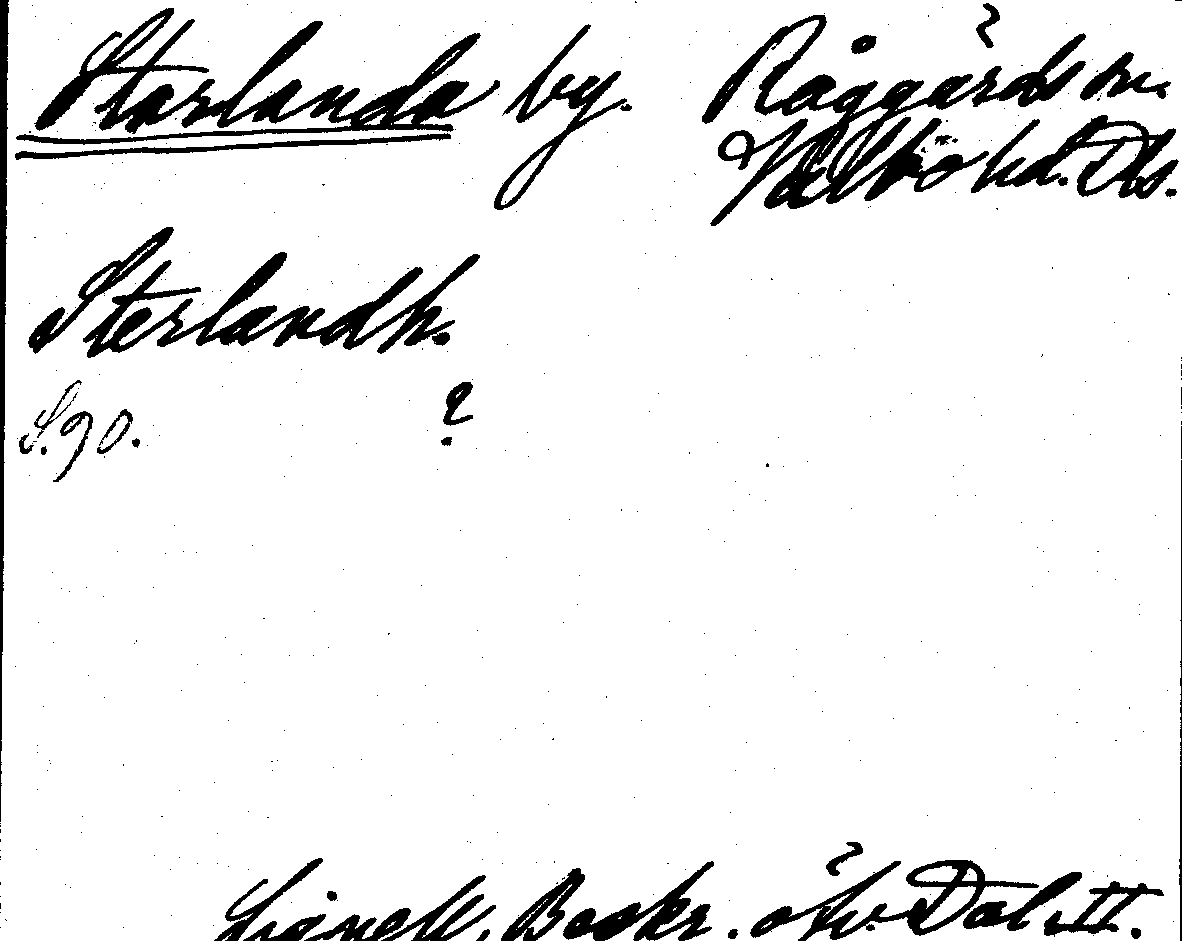 Starlanda by. Råggärds sn.
Valbo hd. Dls.
Sterlandh.
S. 90. ?
Lignell, Beskr. öfv. Dal II.